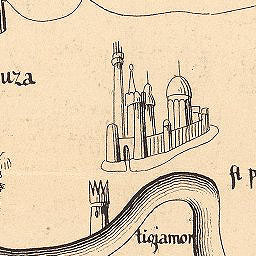 uza
fl p
tigjamor